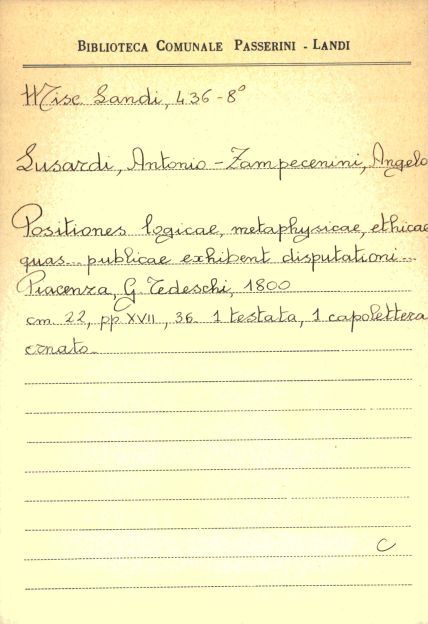 BIBLIOTECA COMUNALE PASSERINI - LANDI
Misc. Landi, 436-8°
Lusardi, Antonio - Zampecenini, Angelo
Positiones logicae, metaphysicae, ethicae
quas... publicae exhibent disputationi...
Piacenza, G. Tedeschi, 1800
cm. 22, pp XVII, 36. 1 testata, 1 capolettera
ornato.
C